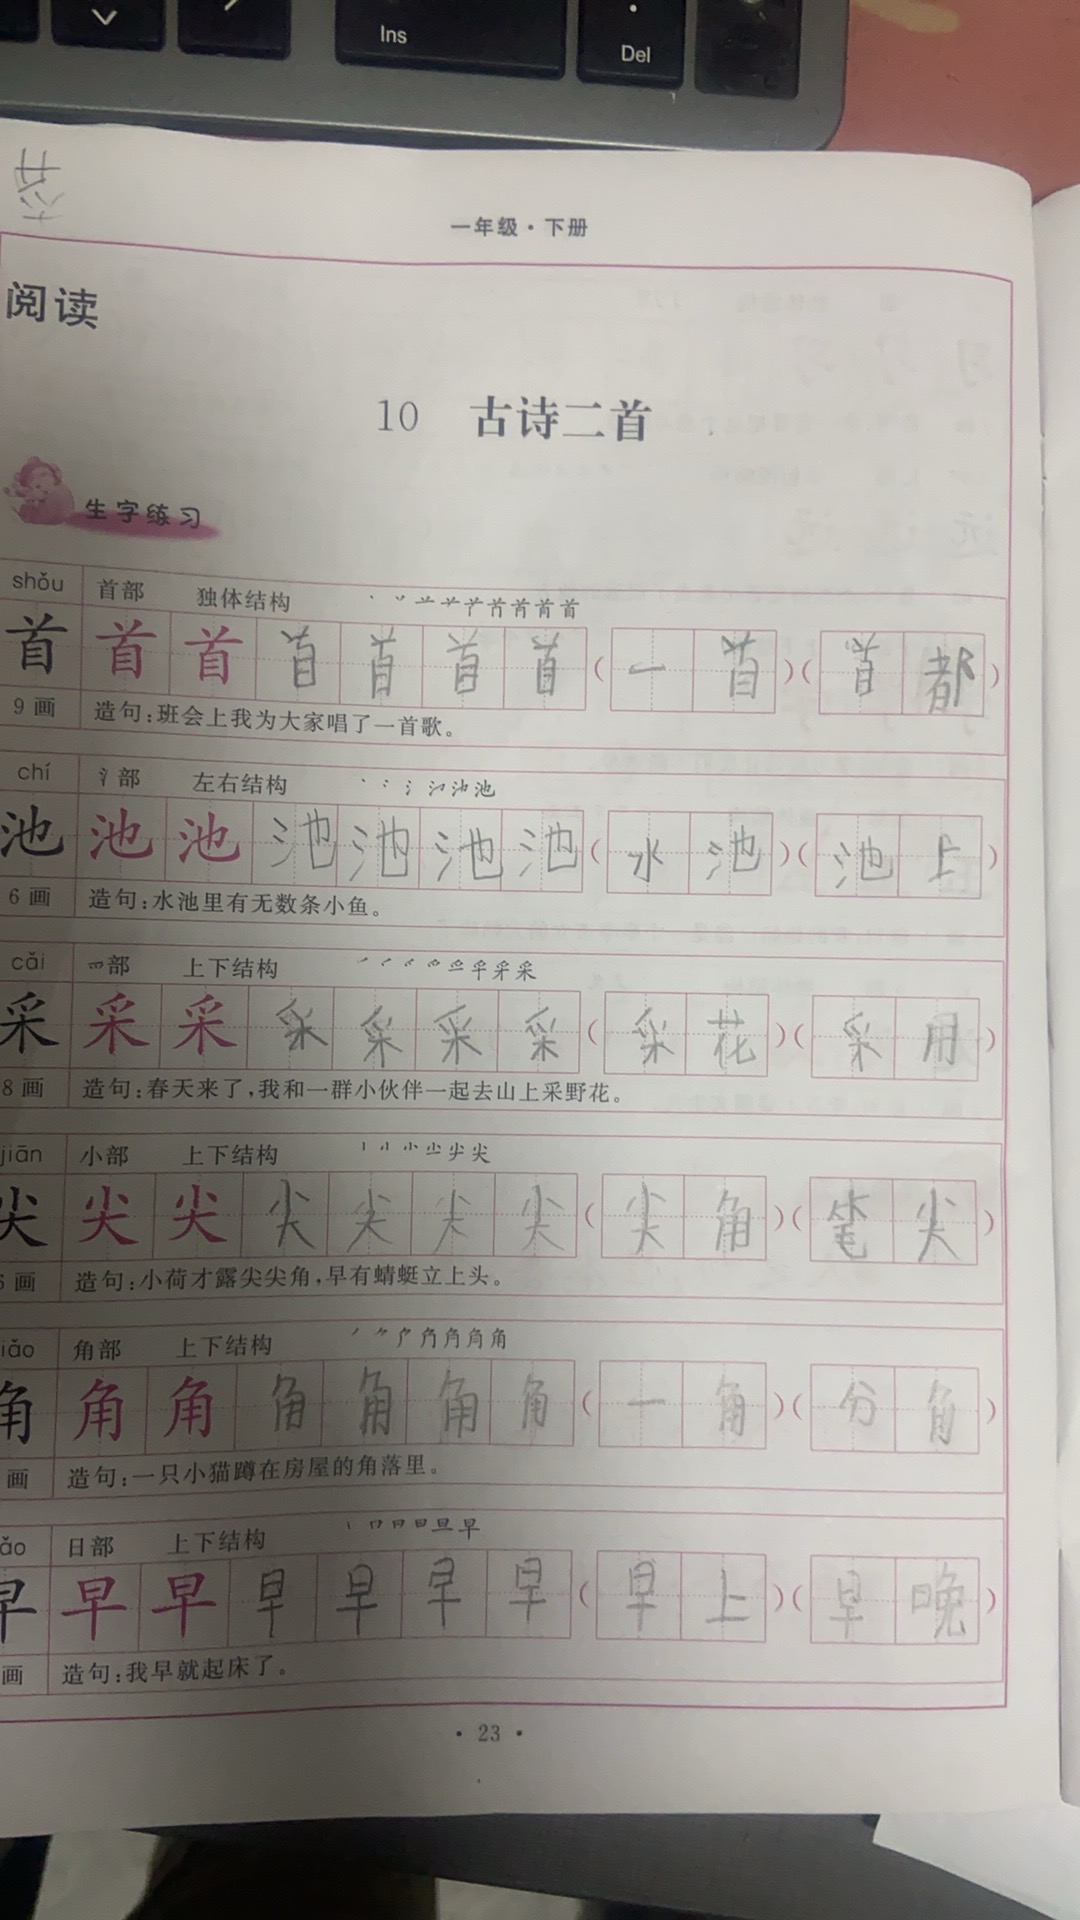 Ins
Del
一年级·下册
阅读
10 古诗二首
生字练习
shǒu 首部 独体结构
首 首 首 首 首 首 首 (一首)(首都)
9画 造句:班会上我为大家唱了一首歌。
chí 氵部 左右结构
池 池 池 池 池 池 池 (水池)(池上)
6画 造句:水池里有无数条小鱼。
cǎi 爫部 上下结构
采 采 采 采 采 采 采 (采花)(采用)
8画 造句:春天来了,我和一群小伙伴一起去山上采野花。
jiān 小部 上下结构
尖 尖 尖 尖 尖 尖 尖 (尖角)(笔尖)
6画 造句:小荷才露尖尖角,早有蜻蜓立上头。
iǎo 角部 上下结构
角 角 角 角 角 角 角 (一角)(分角)
画 造句:一只小猫蹲在房屋的角落里。
ǎo 日部 上下结构
早 早 早 早 早 早 早 (早上)(早晚)
画 造句:我早就起床了。
·23·